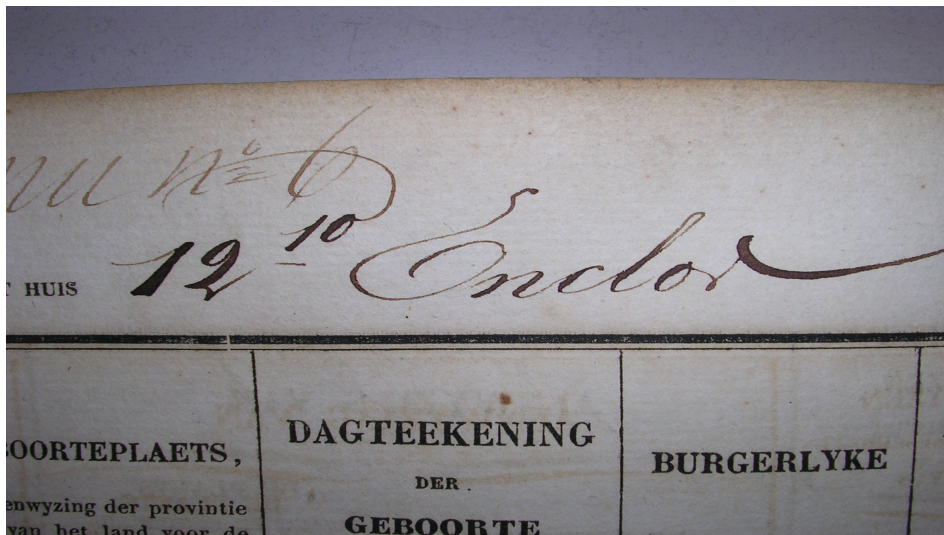 nu N° 6
T HUIS 12 10 Enclos
OORTEPLAETS,
enwyzing der provintie
van het land voor de
DAGTEEKENING
DER
GEBOORTE
BURGERLYKE